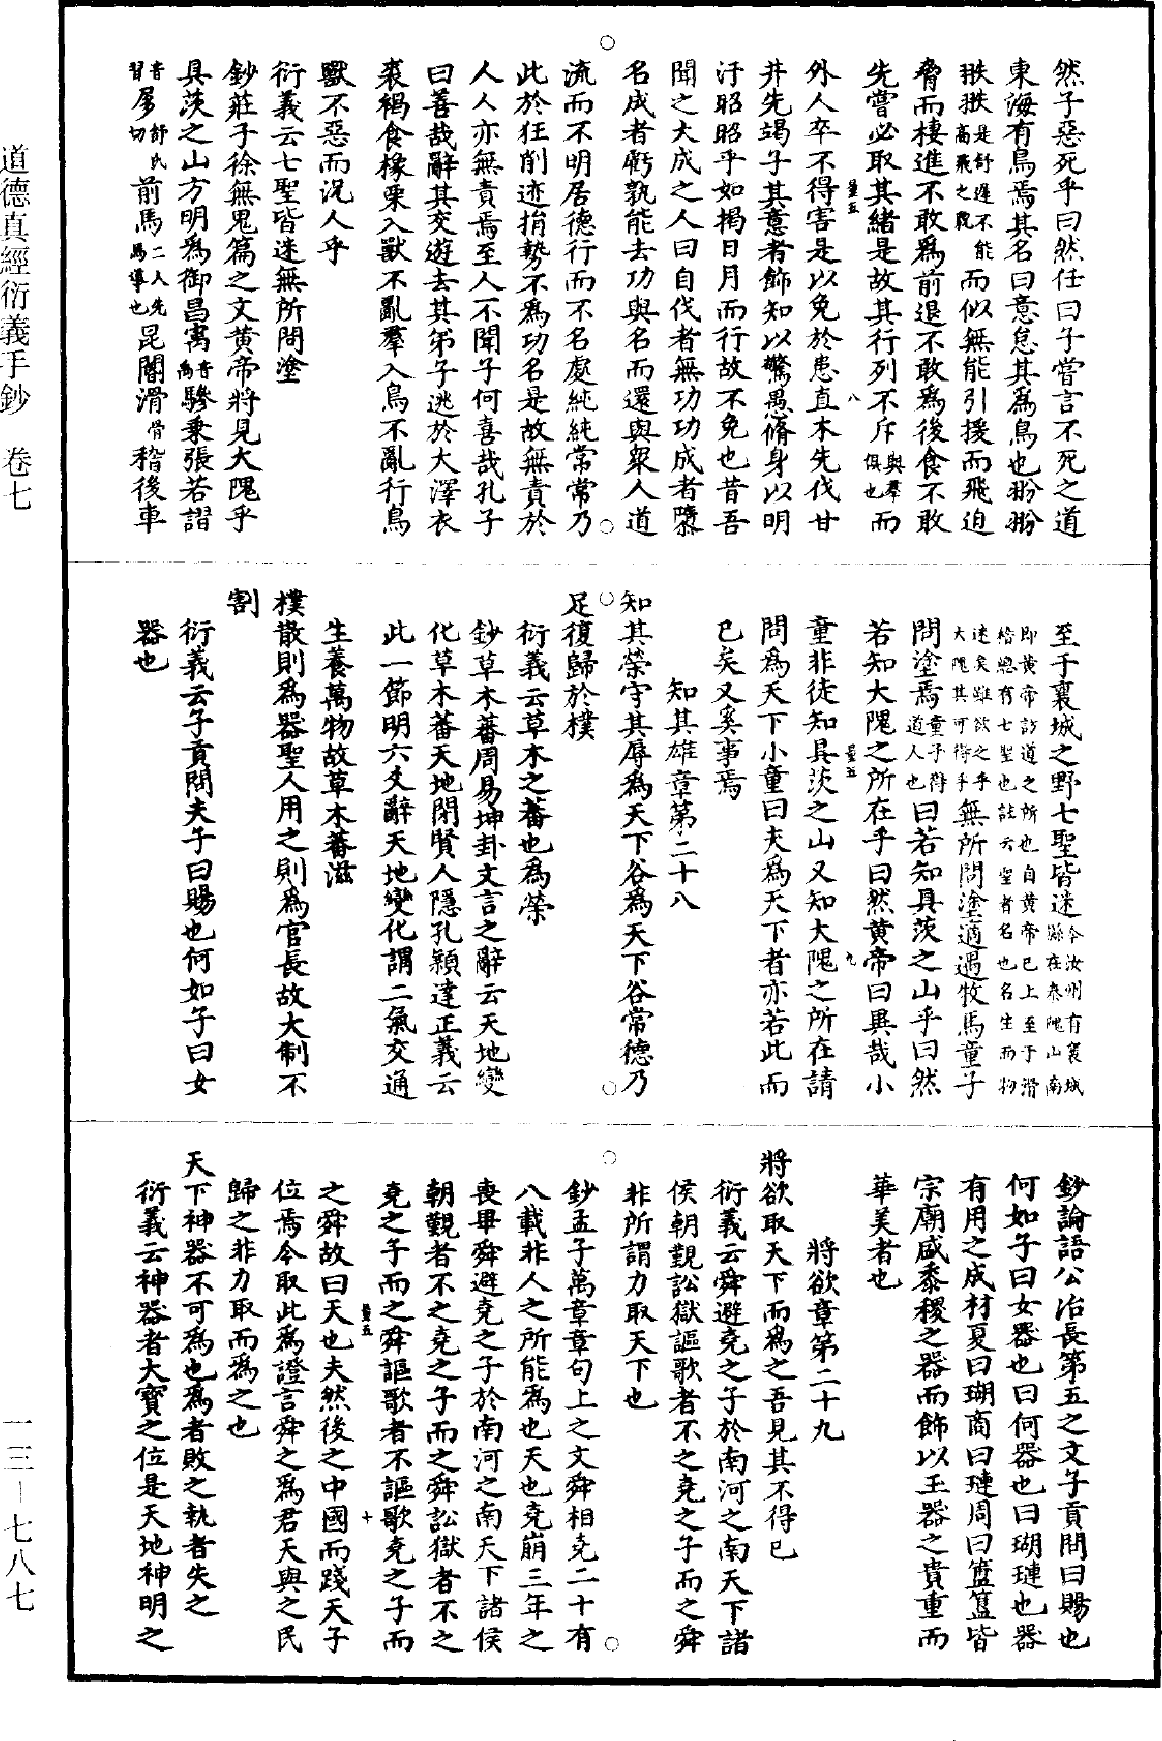 然子惡死乎曰然任曰子嘗言不死之道
東海有鳥焉其名曰意怠其為鳥也翂翂
翐翐是舒遲不能高飛之貌而似無能引援而飛迫
脅而棲進不敢為前退不敢為後食不敢
先嘗必取其緒是故其行列不斥與羣俱也而
外人卒不得害是以免於患直木先伐甘
井先竭子其意者飾知以驚愚脩身以明
汙昭昭乎如揭日月而行故不免也昔吾
聞之大成之人曰自伐者無功功成者隳
名成者虧孰能去功與名而還與眾人道
流而不明居德行而不名處純純常常乃
比於狂削迹捐勢不為功名是故無責於
人人亦無責焉至人不聞子何喜哉孔子
曰善哉辭其交遊去其弟子逃於大澤衣
裘褐食橡栗入獸不亂羣入鳥不亂行鳥
獸不惡而況人乎
衍義云七聖皆迷無所問塗
鈔莊子徐無鬼篇之文黄帝將見大隗乎
具茨之山方明為御昌㝢音禹驂乘張若謵
音習㢋舒氏切前馬二人先馬導也昆閽滑骨稽後車
至于襄城之野七聖皆迷今汝州有襄城縣在泰隗山南
即黄帝訪道之所也自黄帝已上至于滑稽總有七聖也註云聖者名也名生而物
迷矣雖欲之乎大隗其可得乎無所問塗適遇牧馬童子
問塗焉童子得道人也曰若知具茨之山乎曰然
若知大隗之所在乎曰然黄帝曰異哉小
童非徒知具茨之山又知大隗之所在請
問為天下小童曰夫為天下者亦若此而
已矣又奚事焉
知其雄章第二十八
知其榮守其辱為天下谷為天下谷常德乃
足復歸於樸
衍義云草木之蕃也為榮
鈔草木蕃周易坤卦文言之辭云天地變
化草木蕃天地閉賢人隱孔穎達正義云
此一節明六爻辭天地變化謂二氣交通
生養萬物故草木蕃滋
樸散則為器聖人用之則為官長故大制不
割
衍義云子貢問夫子曰賜也何如子曰女
器也
鈔論語公冶長第五之文子貢問曰賜也
何如子曰女器也曰何器也曰瑚璉也器
有用之成材夏曰瑚商曰璉周曰簠簋皆
宗廟盛黍稷之器而飾以玉器之貴重而
華美者也
將欲章第二十九
將欲取天下而為之吾見其不得已
衍義云舜避堯之子於南河之南天下諸
侯朝覲訟獄謳歌者不之堯之子而之舜
非所謂力取天下也
鈔孟子萬章章句上之文舜相堯二十有
八載非人之所能為也天也堯崩三年之
喪畢舜避堯之子於南河之南天下諸侯
朝覲者不之堯之子而之舜訟獄者不之
堯之子而之舜謳歌者不謳歌堯之子而
之舜故曰天也夫然後之中國而踐天子
位焉今取此為證言舜之為君天與之民
歸之非力取而為之也
天下神器不可為也為者敗之執者失之
衍義云神器者大寶之位是天地神明之
道德真經衍義手鈔 卷七
一三－七八七